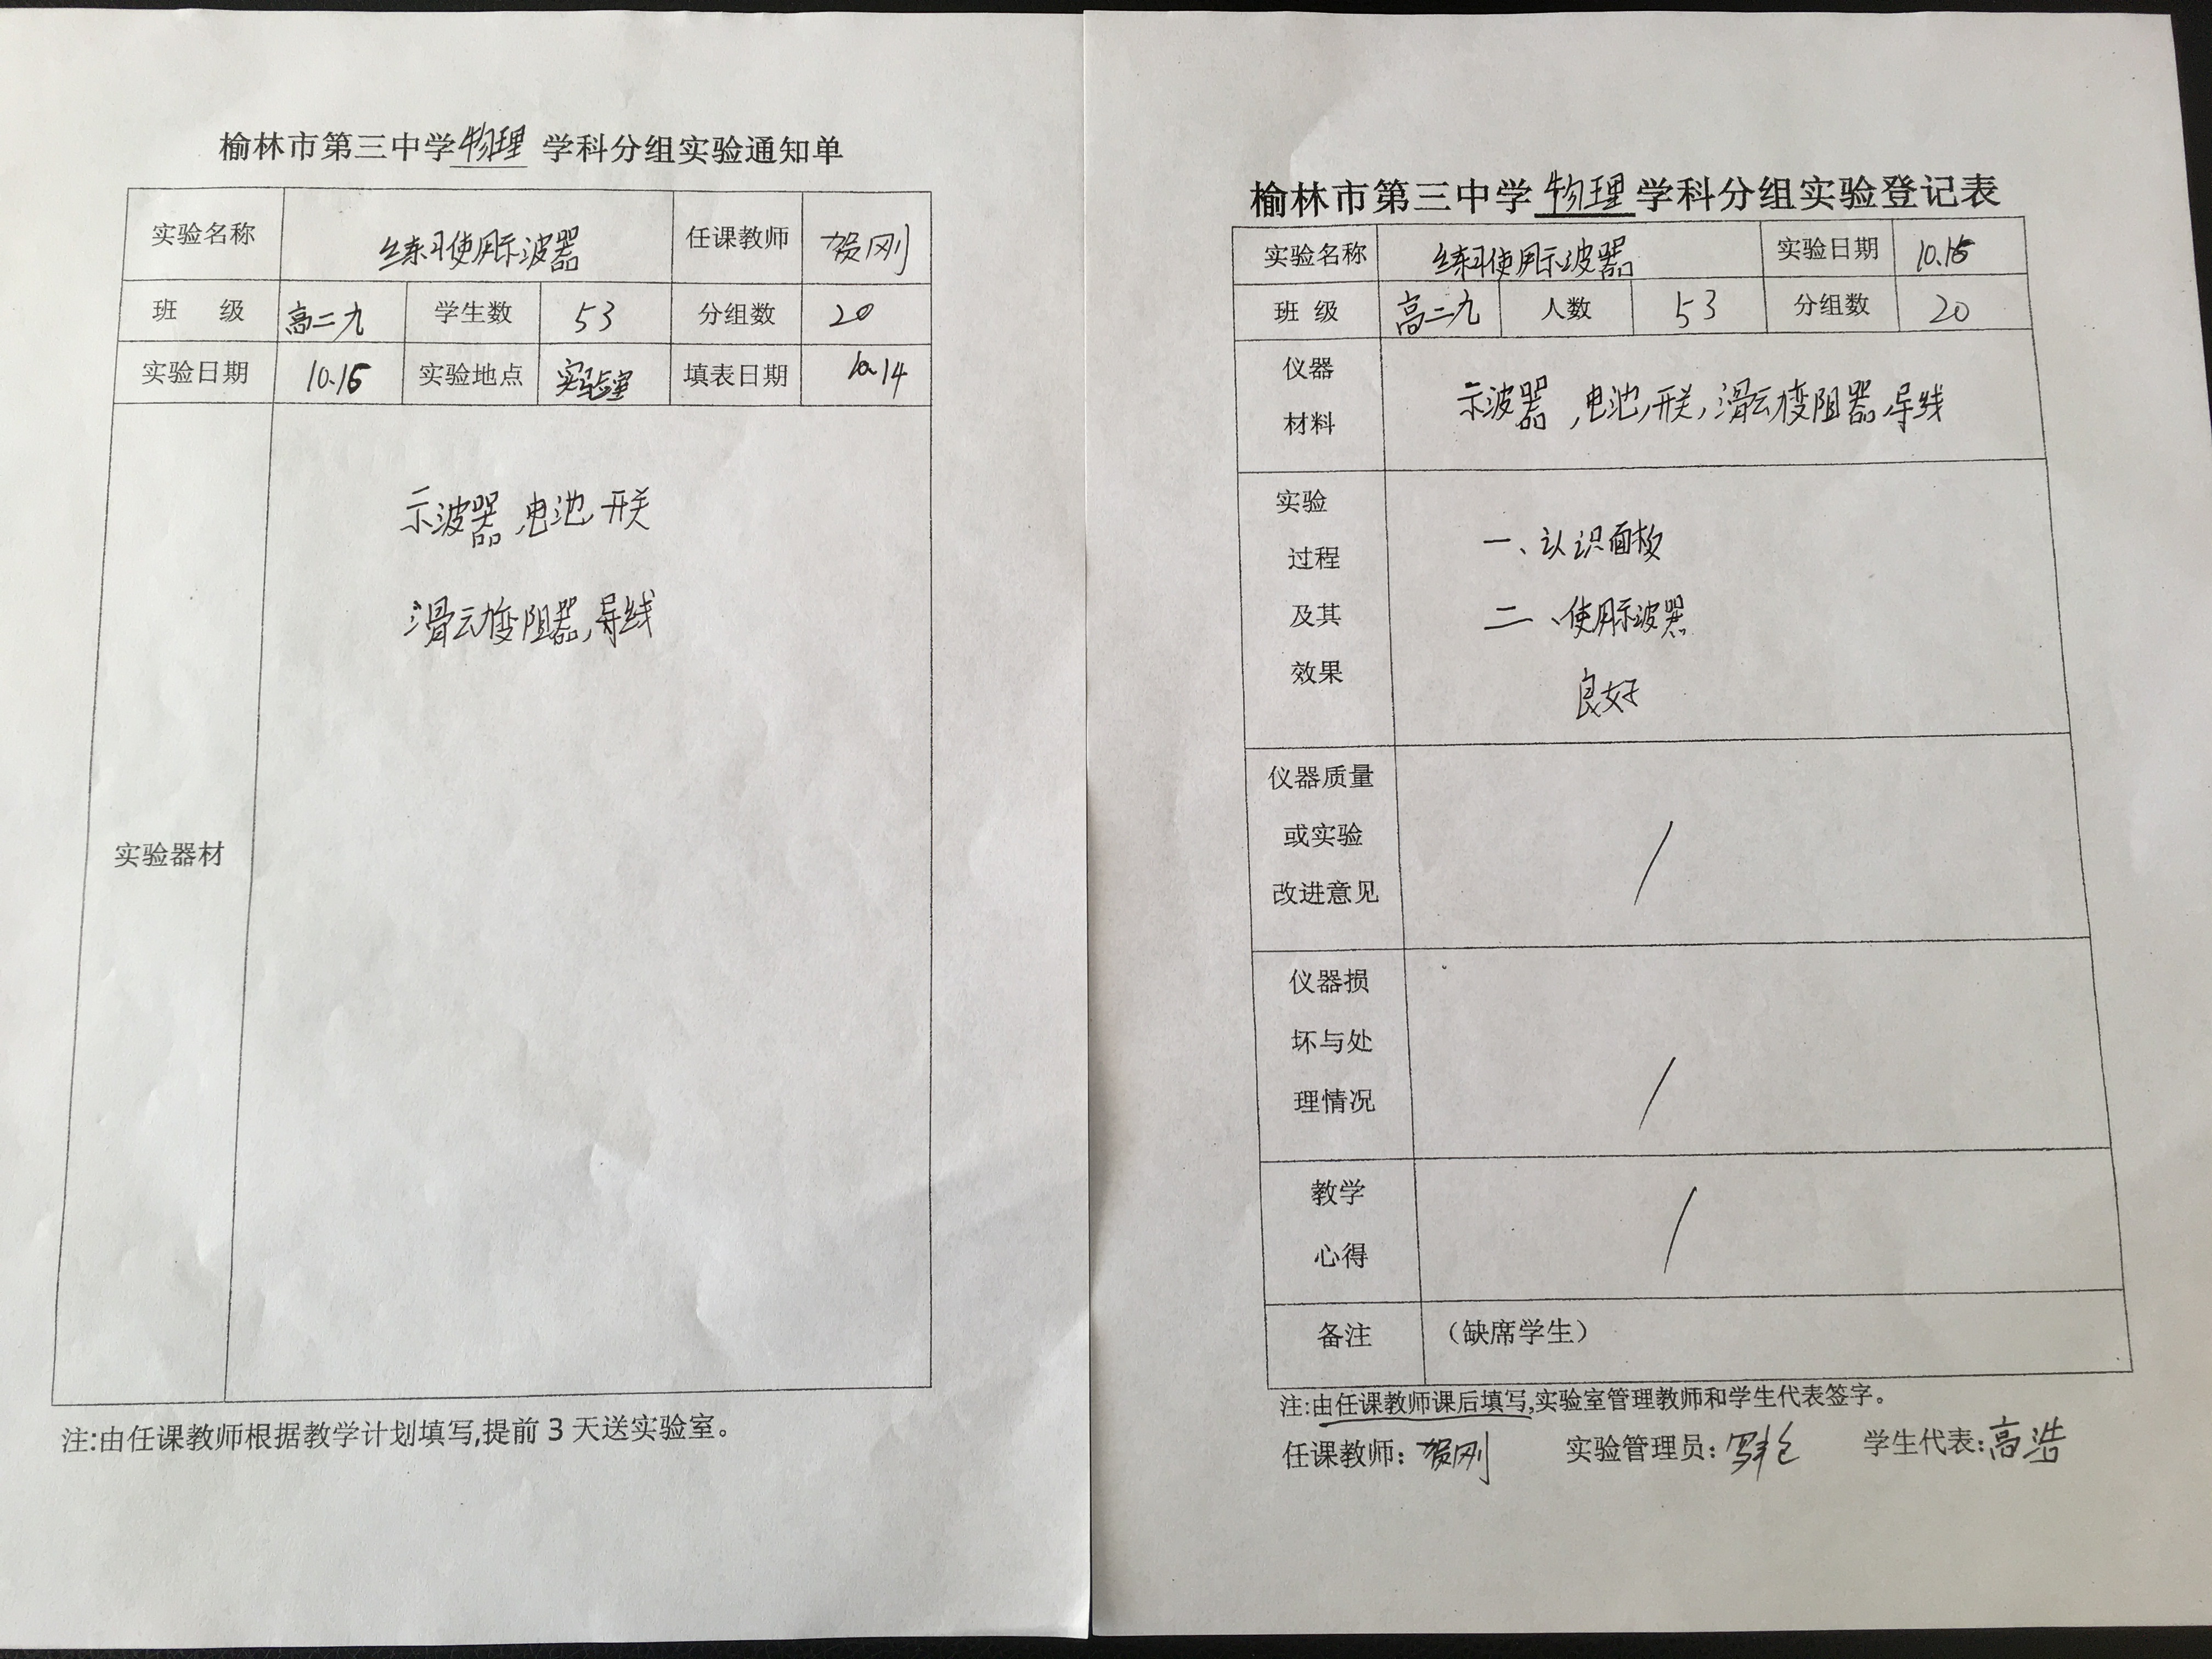 榆林市第三中学物理 学科分组实验通知单
实验名称 练习使用示波器 任课教师 贺刚
班 级 高二九 学生数 53 分组数 20
实验日期 10.15 实验地点 实验室 填表日期 10.14
实验器材
示波器,电池,开关
滑动变阻器,导线
注:由任课教师根据教学计划填写,提前3天送实验室。
榆林市第三中学物理学科分组实验登记表
实验名称 练习使用示波器 实验日期 10.15
班 级 高二九 人数 53 分组数 20
仪器
材料
示波器,电池,开关,滑动变阻器,导线
实验
过程
及其
效果
一、认识面板
二、使用示波器
良好
仪器质量
或实验
改进意见
/
仪器损
坏与处
理情况
/
教学
心得
/
备注 (缺席学生)
注:由任课教师课后填写,实验室管理教师和学生代表签字。
任课教师:贺刚 实验管理员: 学生代表:高浩